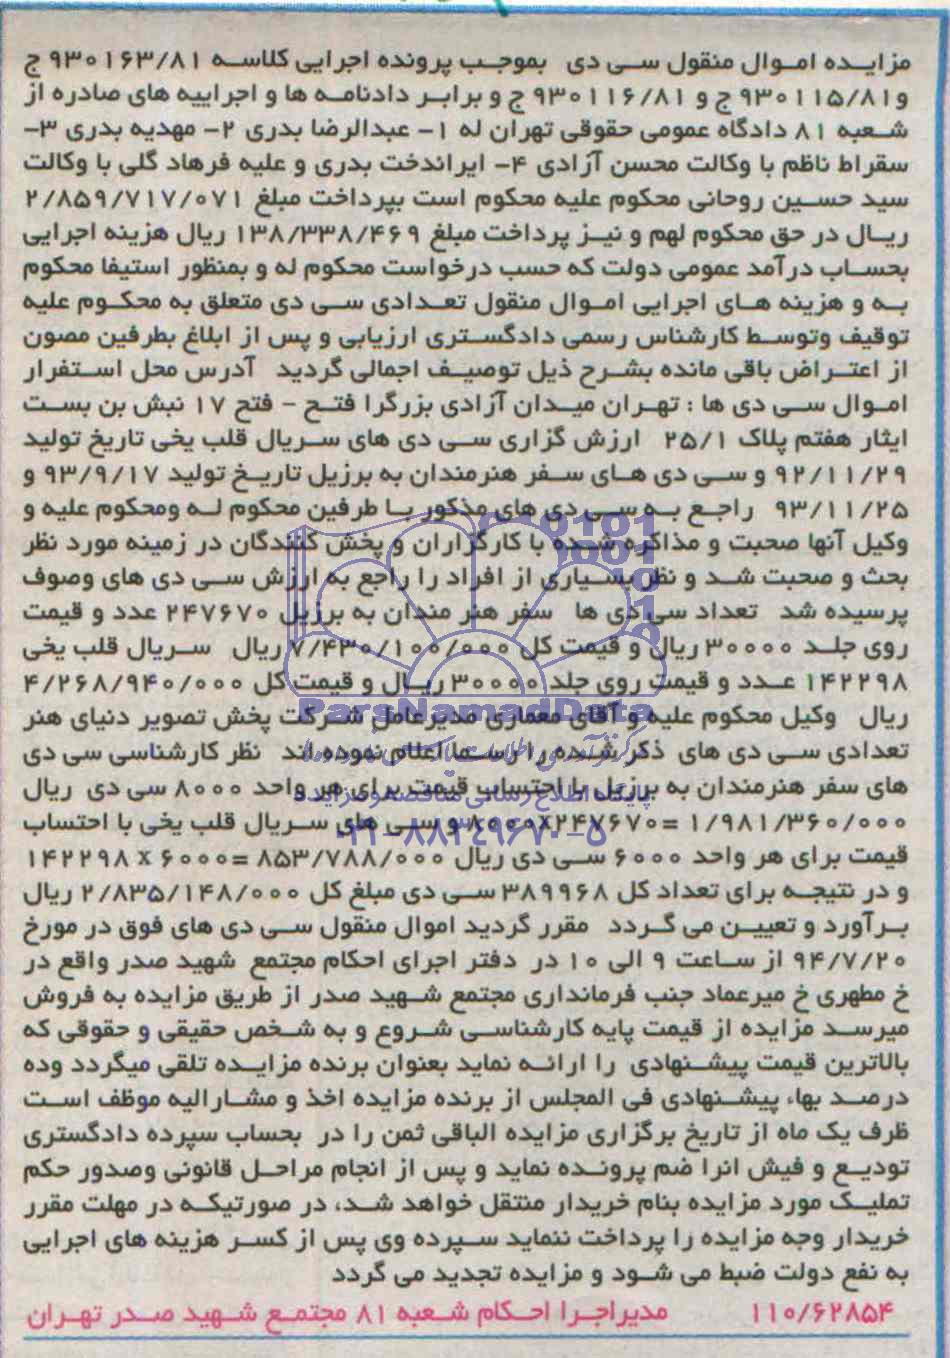 مزایـده امـوال منقول سـی دی بموجـب پرونده اجرایی کلاسـه ۹۳۰۱۶۳/۸۱ ج
و۹۳۰۱۱۵/۸۱ ج و ۹۳۰۱۱۶/۸۱ ج و برابـر دادنامـه ها و اجراییه های صادره از
شـعبه ۸۱ دادگاه عمومی حقوقی تهران له ۱- عبدالرضا بدری ۲- مهدیه بدری ۳-
سقراط ناظم با وکالت محسن آزادی ۴- ایراندخت بدری و علیه فرهاد گلی با وکالت
سید حسـین روحانی محکوم علیه محکوم است بپرداخت مبلغ ۲/۸۵۹/۷۱۷/۰۷۱
ریـال در حق محکوم لهم و نیـز پرداخت مبلغ ۱۳۸/۳۳۸/۴۶۹ ریال هزینه اجرایی
بحسـاب درآمد عمومی دولت که حسب درخواست محکوم له و بمنظور استیفا محکوم
بـه و هزینه هـای اجرایی امـوال منقول تعـدادی سـی دی متعلق به محکـوم علیه
توقیف وتوسـط کارشناس رسمی دادگسـتری ارزیابی و پس از ابلاغ بطرفین مصون
از اعتـراض باقی مانده بشـرح ذیل توصیـف اجمالی گردید آدرس محل اسـتفرار
امـوال سـی دی ها : تهـران میـدان آزادی بزرگرا فتـح - فتح ۱۷ نبش بن بسـت
ایثار هفتم پلاک ۲۵/۱ ارزش گزاری سـی دی های سـریال قلب یخی تاریخ تولید
۹۲/۱۱/۲۹ و سـی دی هـای سـفر هنرمندان به برزیل تاریـخ تولید ۹۳/۹/۱۷ و
۹۳/۱۱/۲۵ راجـع بـه سـی دی های مذکور بـا طرفین محکوم لـه ومحکوم علیه و
وکیل آنها صحبت و مذاکره شـده با کارگزاران و پخش کنندگان در زمینه مورد نظر
بحث و صحبت شـد و نظر بسـیاری از افراد را راجع به ارزش سـی دی های وصوف
پرسیده شد تعداد سی دی ها سفر هنر مندان به برزیل ۲۴۷۶۷۰ عدد و قیمت
روی جلـد ۳۰۰۰۰ ریال و قیمت کل ۷/۴۳۰/۱۰۰/۰۰۰ ریال سـریال قلب یخی
۱۴۲۲۹۸ عـدد و قیمت روی جلد ۳۰۰۰۰ ریـال و قیمت کل ۴/۲۶۸/۹۴۰/۰۰۰
ParsNamadData
ریال وکیل محکوم علیه و آقای معماری مدیرعامل شـرکت پخش تصویر دنیای هنر
تعدادی سـی دی های ذکر شـده را رسـما اعلام نموده اند نظر کارشناسی سی دی
پایگاه اطلاع رسانی مناقصه و مزایده
های سفر هنرمندان به برزیل با احتساب قیمت برای هر واحد ۸۰۰۰ سی دی ریال
۰۲۱-۸۸۳۴۹۶۷۰-۵
۱/۹۸۱/۳۶۰/۰۰۰ =۸۰۰۰x۲۴۷۶۷۰ و سـی های سـریال قلب یخی با احتساب
قیمت برای هر واحد ۶۰۰۰ سـی دی ریال ۸۵۳/۷۸۸/۰۰۰ =۶۰۰۰ x ۱۴۲۲۹۸
و در نتیجـه برای تعداد کل ۳۸۹۹۶۸ سـی دی مبلغ کل ۲/۸۳۵/۱۴۸/۰۰۰ ریال
بـرآورد و تعییـن می گـردد مقرر گردید اموال منقول سـی دی های فوق در مورخ
۹۴/۷/۲۰ از سـاعت ۹ الی ۱۰ در دفتر اجرای احکام مجتمع شهید صدر واقع در
خ مطهری خ میرعماد جنب فرمانداری مجتمع شـهید صدر از طریق مزایده به فروش
میرسـد مزایده از قیمت پایه کارشناسـی شـروع و به شـخص حقیقی و حقوقی که
بالاترین قیمت پیشـنهادی را ارائـه نماید بعنوان برنده مزایـده تلقی میگردد وده
درصـد بهاء پیشـنهادی فی المجلس از برنده مزایده اخذ و مشـارالیه موظف اسـت
ظرف یک ماه از تاریخ برگزاری مزایده الباقی ثمن را در بحساب سپرده دادگستری
تودیـع و فیش انرا ضم پرونـده نماید و پس از انجام مراحـل قانونی وصدور حکم
تملیـک مورد مزایده بنام خریدار منتقل خواهد شـد، در صورتیکـه در مهلت مقرر
خریدار وجه مزایده را پرداخت ننماید سـپرده وی پس از کسـر هزینه های اجرایی
به نفع دولت ضبط می شـود و مزایده تجدید می گردد
۱۱۰/۶۲۸۵۴ مدیراجـرا احکـام شـعبه ۸۱ مجتمـع شـهید صـدر تهـران